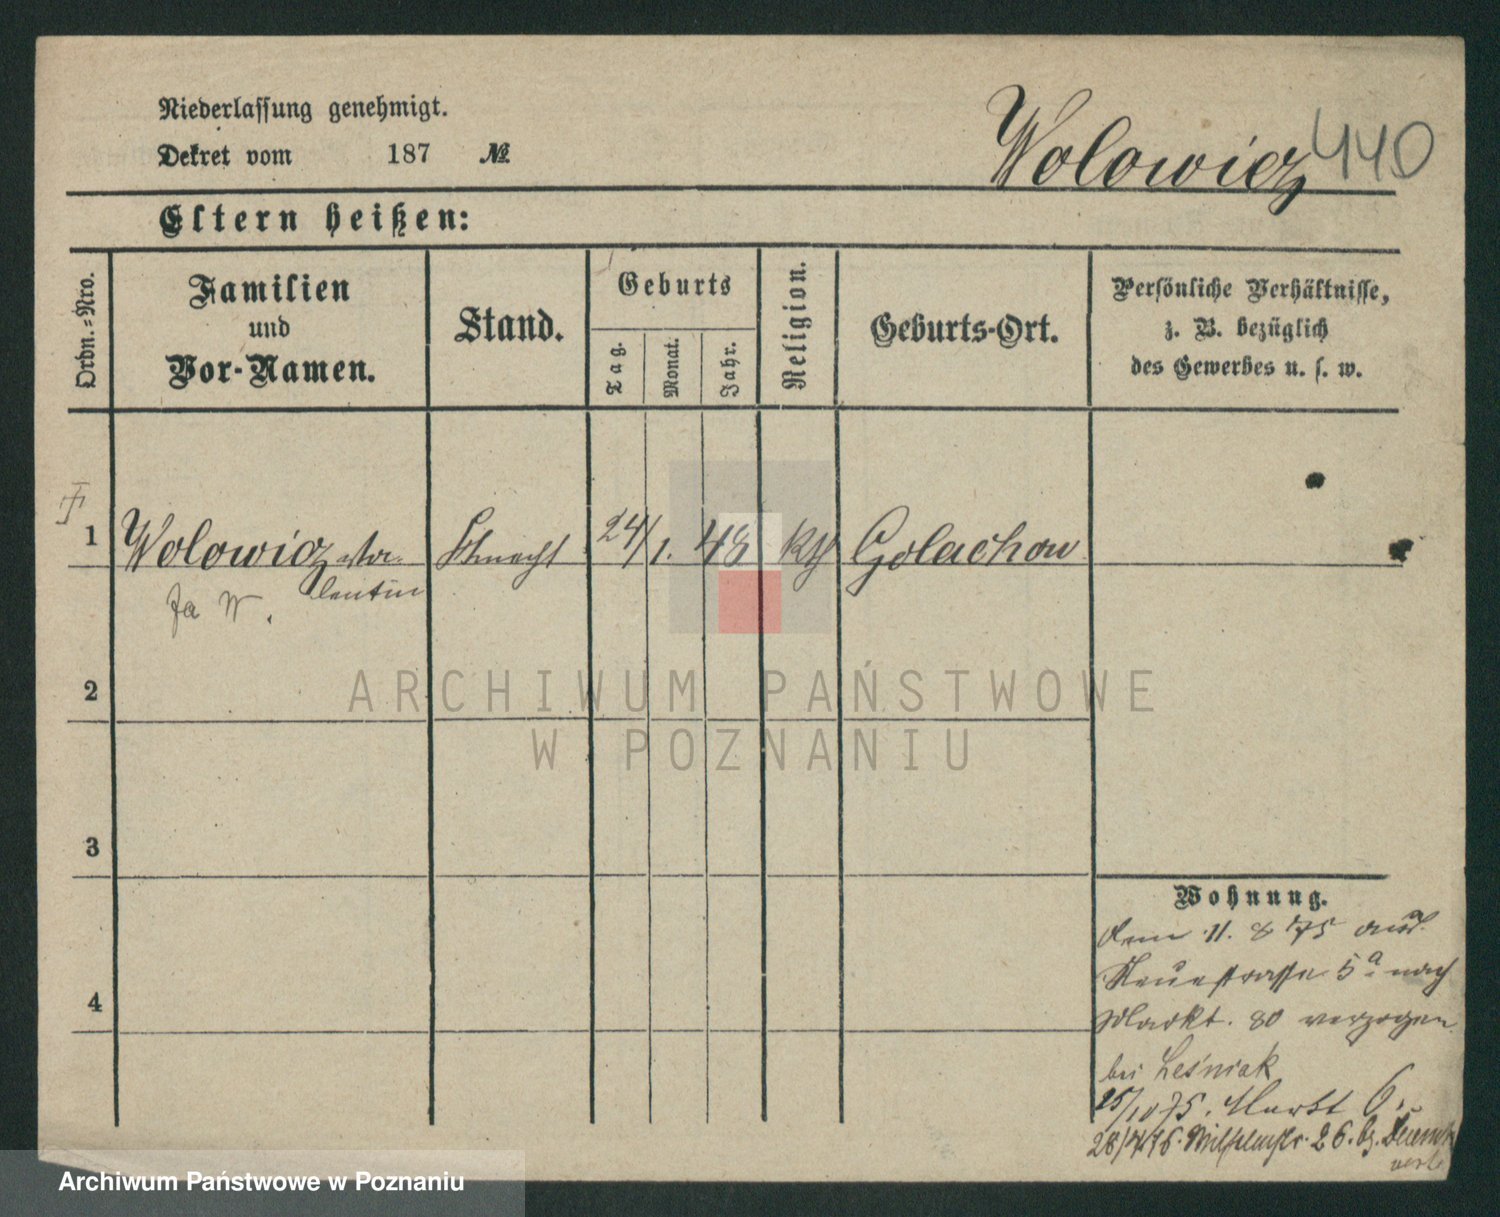 Niederlassung genehmigt.
Dekret vom 187 №
Wolowicz 440
Eltern heißen:
Ordn.-Nro.
Familien
und
Vor-Namen.
Stand.
Geburts
Tag.
Monat.
Jahr.
Religion.
Geburts-Ort.
Persönliche Verhältnisse,
z. B. bezüglich
des Gewerbes u. s. w.
1 Wolowicz Va-
lentin
Knecht 24/ 1. 48 kth Golachow
2
3
4
Wohnung.
dem 11. 8 75 aus
Neuestrasse 5a nach
Markt. 80 verzogen
bei Leśniak
25/10 75. Markt 6.
28/ 76. Wilhelmstr. 26. bz.
ARCHIWUM PAŃSTWOWE
W POZNANIU
Archiwum Państwowe w Poznaniu